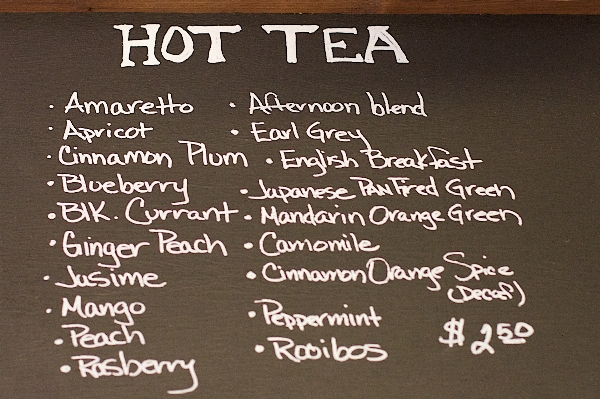 HOT TEA
· Amaretto
· Apricot
· Cinnamon Plum
· Blueberry
· Blk. Currant
· Ginger Peach
· Jasime
· Mango
· Peach
· Rasberry
· Afternoon blend
· Earl Grey
· English Breakfast
· Japanese Pan Fired Green
· Mandarin Orange Green
· Camomile
· Cinnamon Orange Spice
(Decaf)
· Peppermint
· Rooibos
$2.50